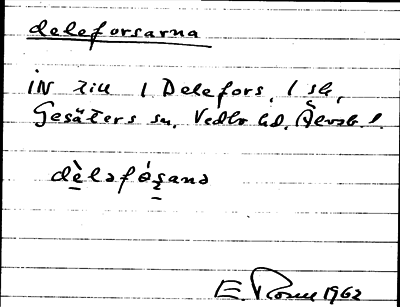 deleforsarna
IN till 1 Delefors, 1 sk,
Gesäters sn, Vedbo hd, Älvsb. l.
dὲləfó̀s̱anə
E. Rosell 1962